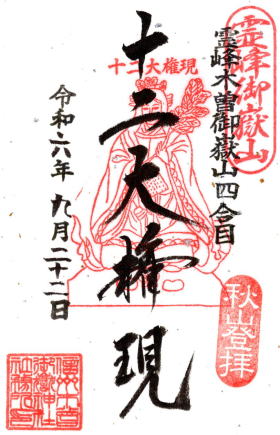 霊峰御嶽山
霊峰木曽御嶽山四合目
十二大権現
十二大権現
令和六年 九月二十二日
秋山登拝